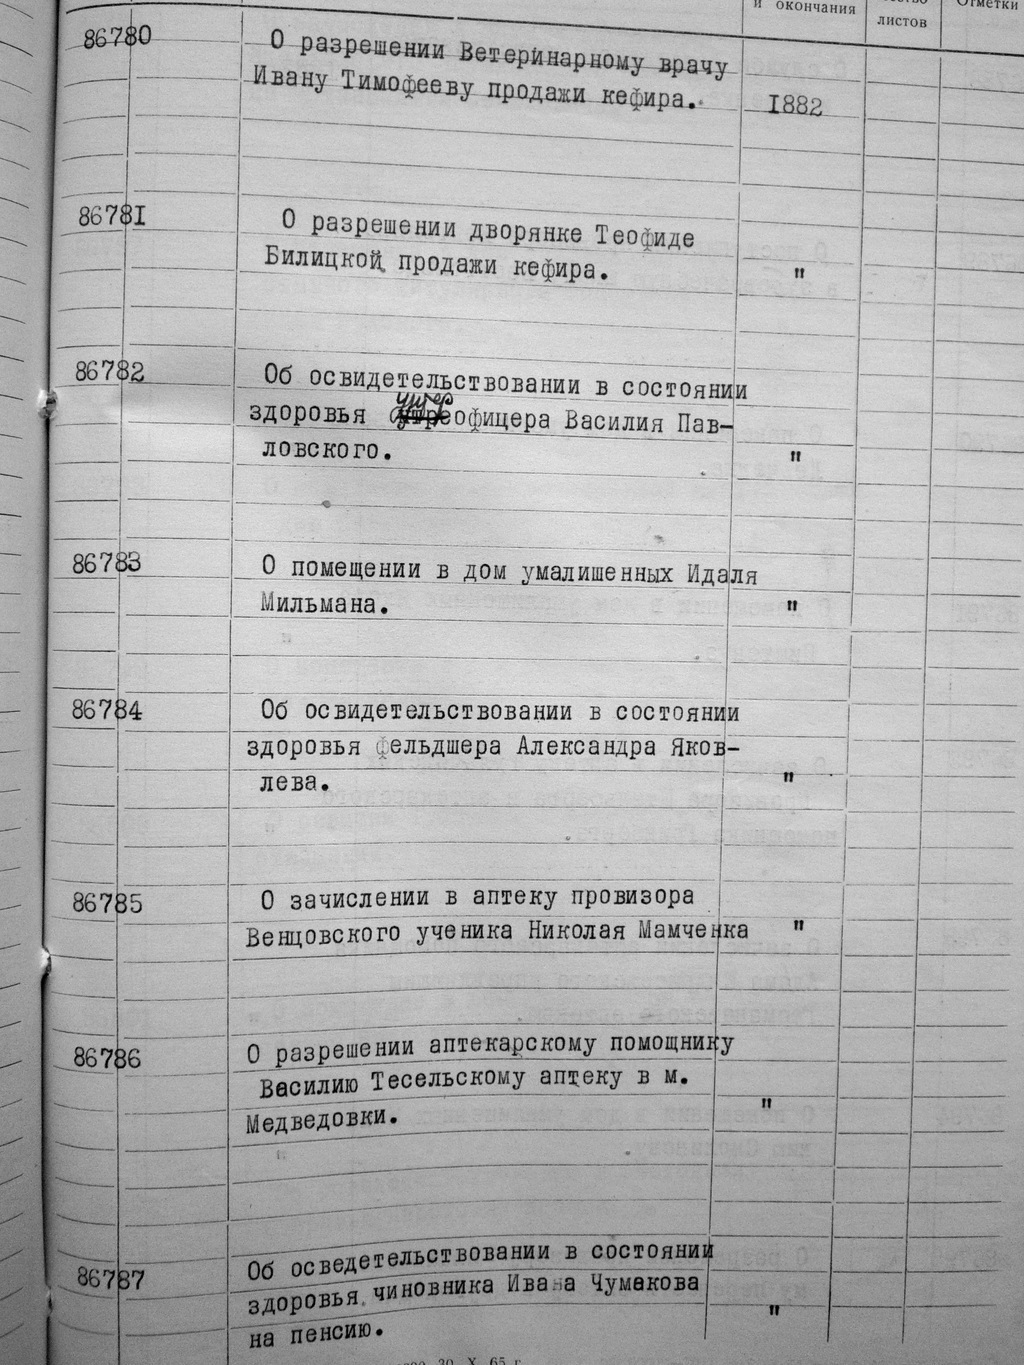 и окончания
листов
Отметки
86780
О разрешении Ветеринарному врачу
Ивану Тимофееву продажи кефира.
1882
86781
О разрешении дворянке Теофиде
Билицкой продажи кефира.
"
86782
Об освидетельствовании в состоянии
здоровья унтерофицера Василия Пав-
ловского.
"
86783
О помещении в дом умалишенных Идаля
Мильмана.
"
86784
Об освидетельствовании в состоянии
здоровья фельдшера Александра Яков-
лева.
"
86785
О зачислении в аптеку провизора
Венцовского ученика Николая Мамченка
"
86786
О разрешении аптекарскому помощнику
Василию Тесельскому аптеку в м.
Медведовки.
"
86787
Об осведетельствовании в состоянии
здоровья чиновника Ивана Чумакова
на пенсию.
"
30. X. 65 г.